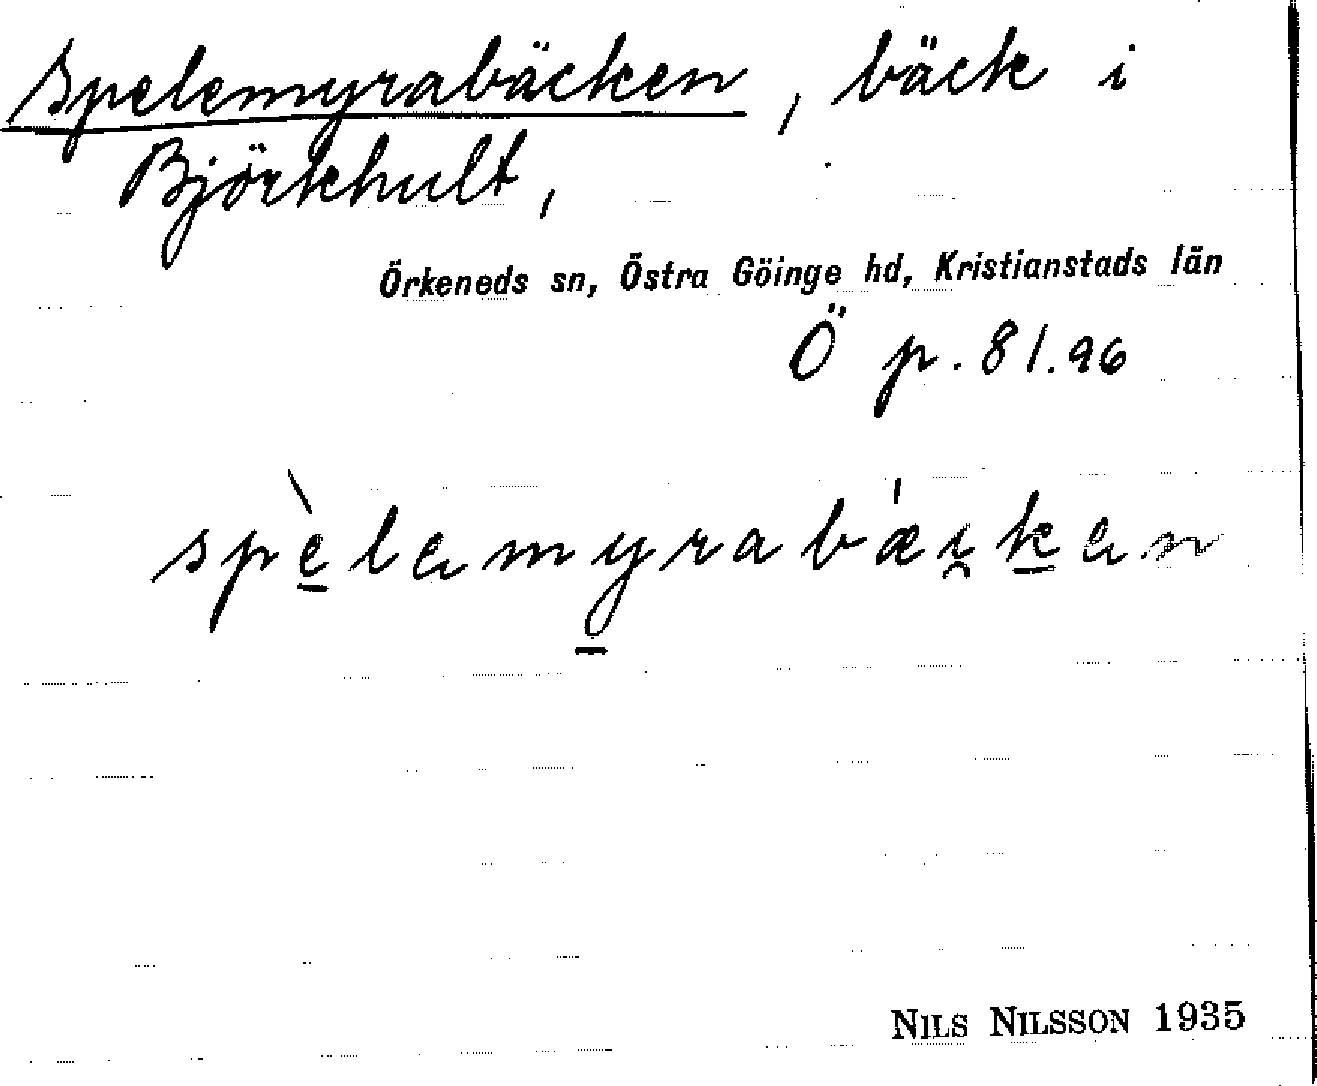 Spelemyrabäcken, bäck i
Björkhult,
Örkeneds sn, Östra Göinge hd, Kristianstads län
Ö p. 81.96
spè̠lɐmy̠rabæ̍i̯k̠ɐn
NILS NILSSON 1935